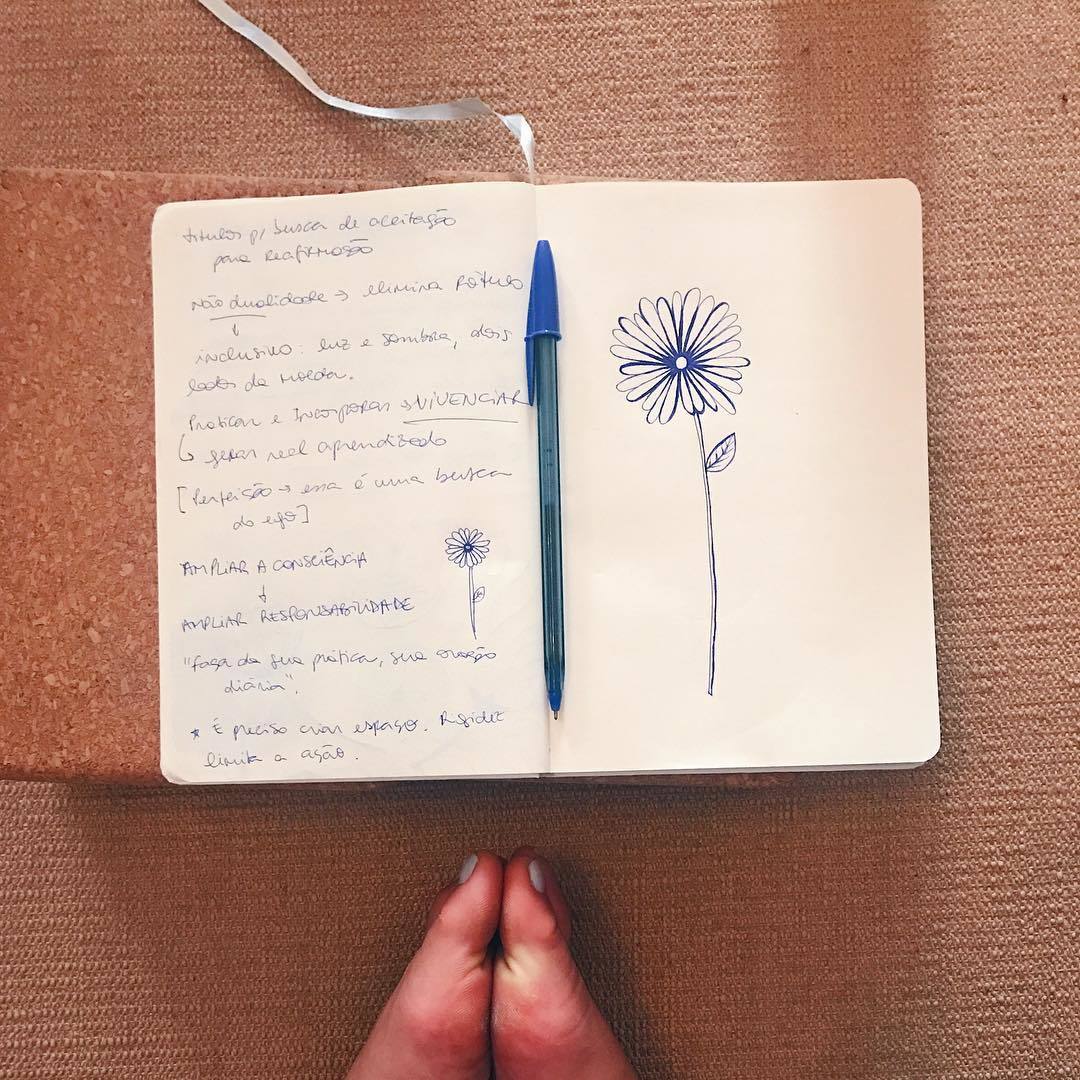 títulos p/ busca de aceitação
para reafirmação
não dualidade → elimina rótulo
↓
inclusivo: luz e sombra, dois
lados da moeda.
Praticar e Incorporar → VIVENCIAR
↳ gerar real aprendizado
[Perfeição → essa é uma busca
do ego]
AMPLIAR A CONSCIÊNCIA
↓
AMPLIAR RESPONSABILIDADE
"faça da sua prática, sua oração
diária".
* É preciso criar espaço. Rigidez
limita a ação.